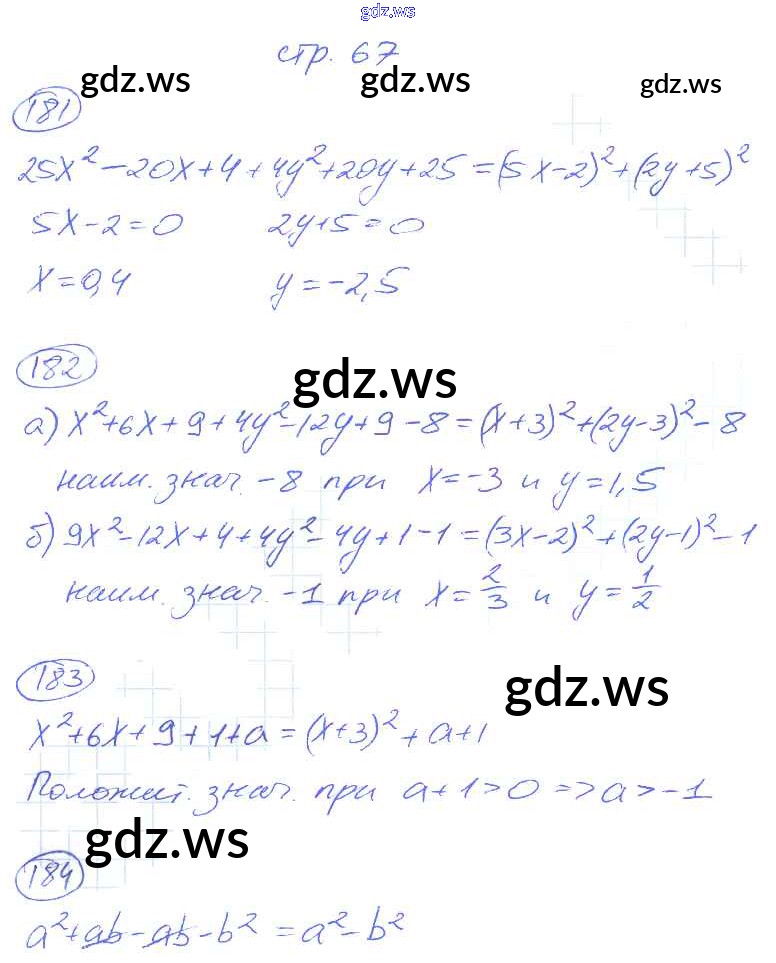 gdz.ws
стр. 67
gdz.ws gdz.ws gdz.ws
181
25x² - 20x + 4 + 4y² + 20y + 25 = (5x-2)² + (2y+5)²
5x - 2 = 0 2y + 5 = 0
x = 0,4 y = -2,5
182
gdz.ws
а) x² + 6x + 9 + 4y² - 12y + 9 - 8 = (x+3)² + (2y-3)² - 8
наим. знач. -8 при x = -3 и y = 1,5
б) 9x² - 12x + 4 + 4y² - 4y + 1 - 1 = (3x-2)² + (2y-1)² - 1
наим. знач. -1 при x = 2/3 и y = 1/2
183
gdz.ws
x² + 6x + 9 + 1 + a = (x+3)² + a + 1
Положит. знач. при a + 1 > 0 => a > -1
gdz.ws
184
a² + ab - ab - b² = a² - b²